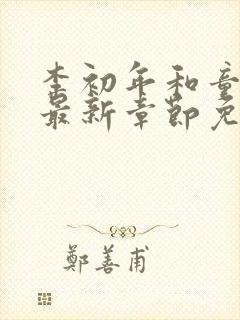 李初年和童
最新章节免
鄭善甫